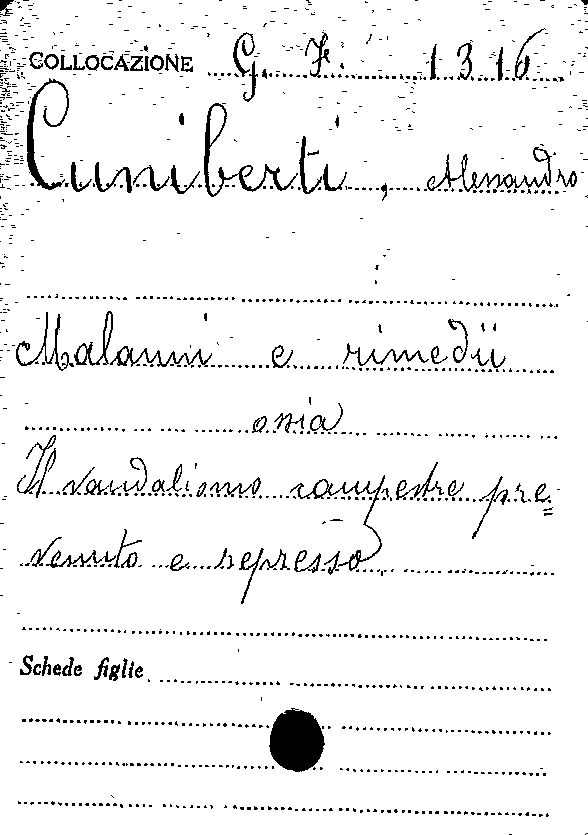 COLLOCAZIONE G. F. 1316
Cuniberti, Alessandro
Malanni e rimedii
ossia
Il vandalismo campestre pre=
venuto e represso.
Schede figlie